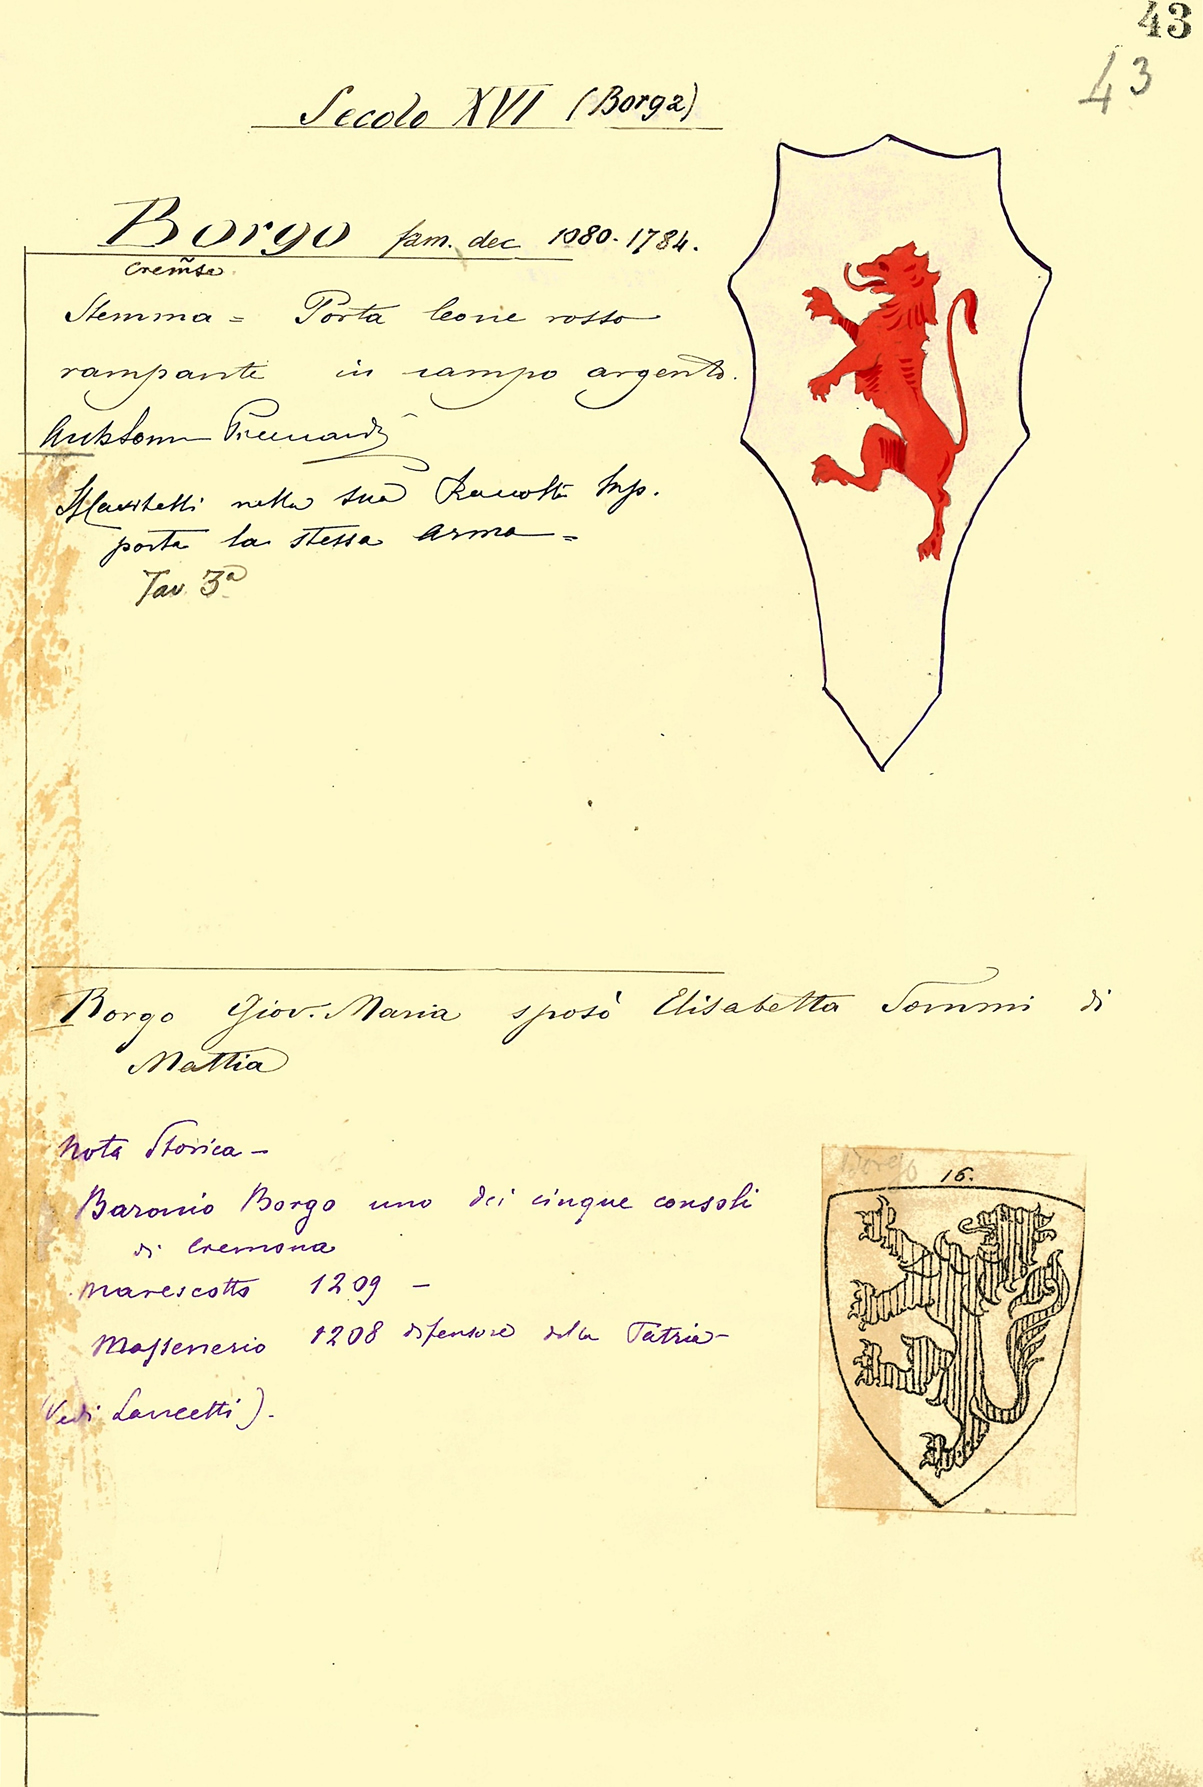 43
43
Secolo XVI (Borga)
Borgo fam. dec. 1080-1784.
Stemma = Porta leone rosso
rampante in campo argento.
nella sua Raccolta Imp.
porta la stessa arma =
Tav 3ª
Borgo Giov. Maria sposò Elisabetta Sommi di
Mattia
Nota Storica -
Baronio Borgo uno dei cinque consoli
di Cremona
Marescotto 1209 -
1208 difensore della Patria -
(Vedi Lancetti).
Borgo
16.